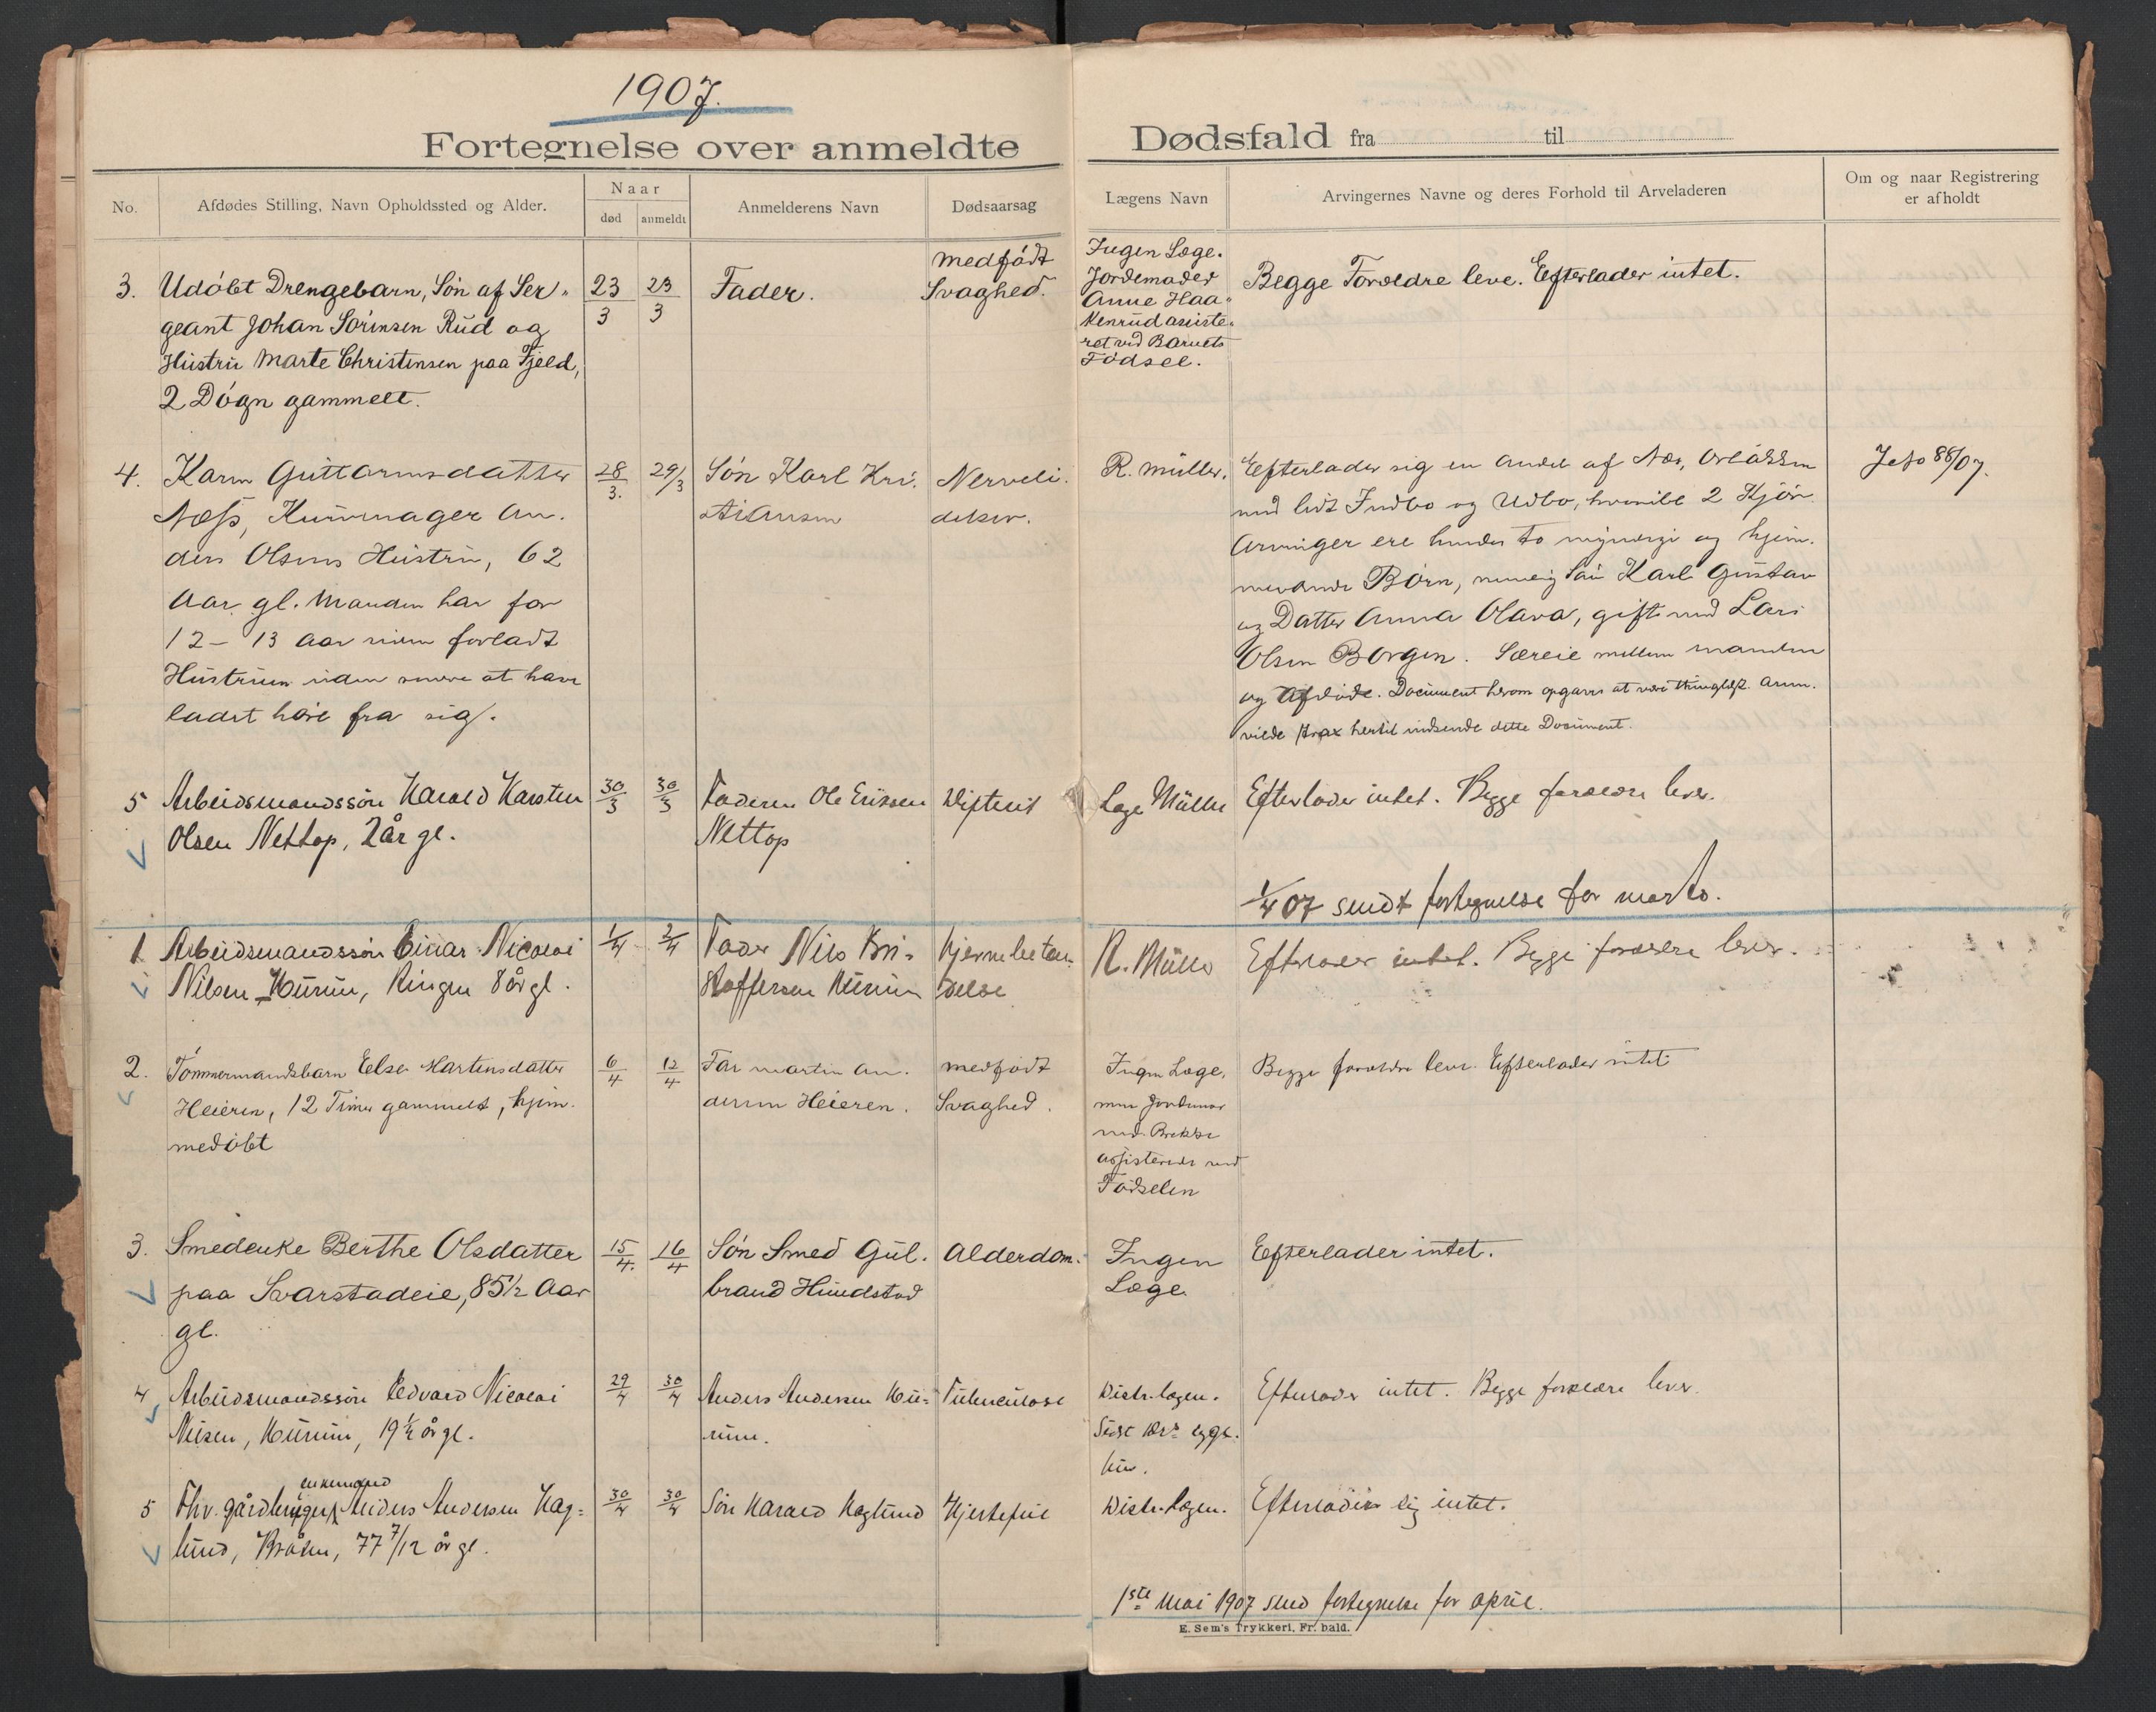 1907.
Fortegnelse over anmeldte Dødsfald fra til
No.
Afdødes Stilling, Navn Opholdssted og Alder.
Naar
død
anmeldt
Anmelderens Navn
Dødsaarsag
Lægens Navn
Arvingernes Navne og deres Forhold til Arveladeren
Om og naar Registrering
er afholdt
3.
Udöbt Drengebarn, Sön af Ser-
geant Johan Sörensen Rud og
Hustru Marte Christensen paa Fjeld,
2 Dögn gammelt.
23/3
23/3
Fader.
medfödt
Svaghed.
Ingen Læge.
Jordemoder
Anne Haa-
kenrud assiste-
ret ved Barnets
Födsel.
Begge Forældre leve. Efterlader intet.
4.
Karen Guttormsdatter
Næss, Kummager An.
ders Olsens Hustru, 62
Aar gl. Manden har for
12 - 13 Aar siden forladt
Hustruen uden senere at have
ladet höre fra sig.
28/3.
29/3
Sön Karl Kri.
stiansen
Nerveli.
delser.
R. Müller.
Efterlader sig en Andel af Næs,
med lidt Indbo og Udbo, hvortil
Arvinger ere hendes to myndige og hjem.
meværende Börn, nemlig Sön Karl Gustav
og Datter Anna Olava, gift med Lars
Olsen Borgen. Særeie mellem Manden
og Afdöde. Document herom opgaves at være thinglæst. Anm.
vilde strax hertil indsende dette Document.
88/07.
5
Arbeidsmandssön Harald Karsten
Olsen Nettop, 2 år gl.
30/3
30/3
Faderen Ole Eriksen
Nettop
Difterit
Læge Müller
Efterlader intet. Begge forældre lever.
1/4 07 sendt fortegnelse for marts.
1
Arbeidsmandssön Einar Nicolai
Nilsen Hurum, Ringen 8 år gl.
1/4
2/4
Fader Nils Kri-
stoffersen Hurum
Hjernebetæn-
delse
R. Müller
Efterlader intet. Begge forældre lever.
2.
Tömmermandsbarn Else Martinsdatter
Heieren, 12 Timer gammelt, hjem.
medöbt
6/4
12/4
Far Martin An.
dersen Heieren.
medfödt
Svaghed.
Ingen Læge,
men Jordemor
Brekke
assisterede ved
Födselen
Begge forældre lever. Efterlader intet
3.
Smedenke Berthe Olsdatter
paa Svarstadeie, 85½ Aar
gl.
15/4.
16/4
Sön Smed Gul.
brand Hundstad
Alderdom.
Ingen
Læge.
Efterlader intet.
4
Arbeidsmandssön Edvard Nicolai
Nilsen, Hurum, 19½ år gl.
29/4
30/4
Anders Andersen Hu-
rum.
Tuberculose
Distr.lægen.
Efterlader intet. Begge forældre lever.
5
enkemand
Fhv. gårdbruger Anders Andersen Hag-
lund, Bråten, 77 7/12 år gl.
30/4
30/4
Sön Harald Haglund
Hjertefeil
Distr.lægen.
Efterlader sig intet.
1ste Mai 1907 send fortegnelse for april.
E. Sem's Trykkeri, Fr.hald.